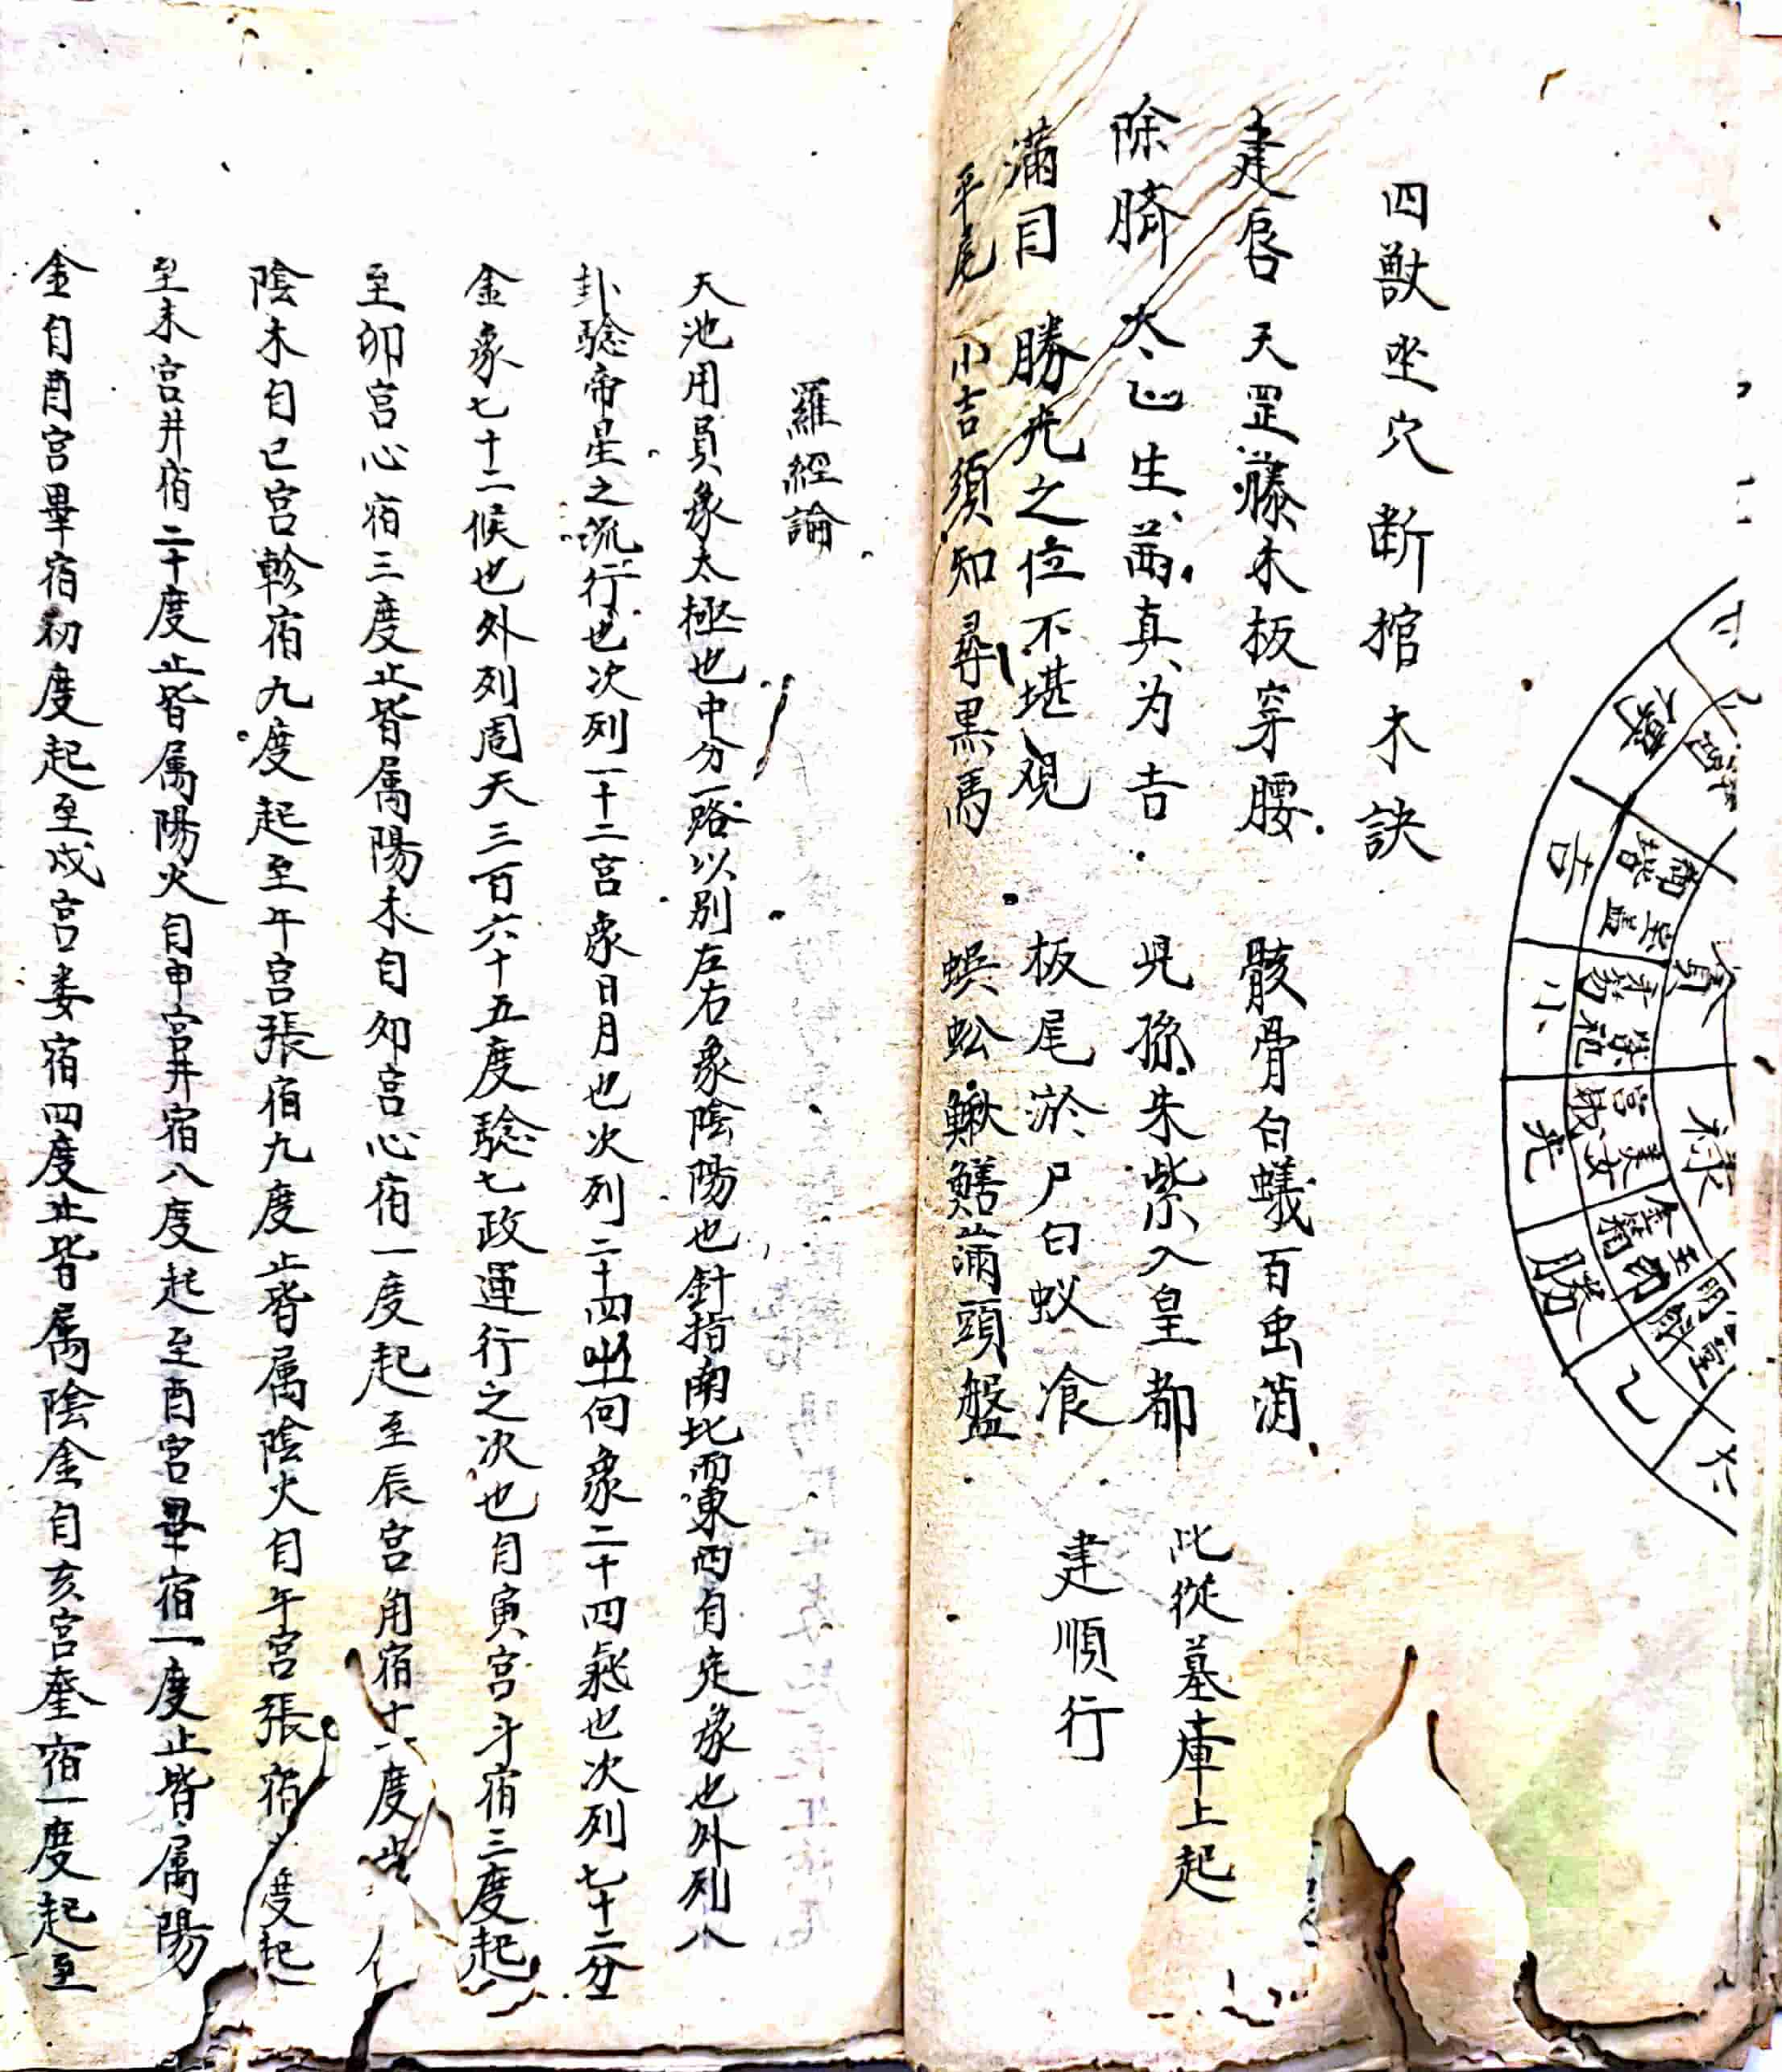 四獸坐穴断棺木訣
建唇 天罡藤木板穿腰 骸骨白蟻百虫消
除臍 太乙生茜真为吉 児孫朱紫入皇都 此從墓庫上起
滿目 勝光之位不堪观 板尾淤尸白蚁飡 建順行
平尾 小吉須知尋黒馬 蜈蚣鰍鱔滿頭盤
羅經論
天池用員象太極也中分一路以別左右象陰陽也針指南北而東西自定象也外列八
卦騐帝星之流行也次列一十二宮象日月也次列二十四向象二十四氣也次列七十二分
金象七十二候也外列周天三百六十五度騐七政運行之次也自寅宮斗宿三度起
至卯宮心宿三度止皆属陽木自卯宮心宿一度起至辰宮角宿十一度
陰木自巳宮軫宿九度起至午宮張宿九度止皆属陰火自午宮張宿 度起
至未宮井宿二十度止皆属陽火自申宮井宿八度起至酉宮畢宿一度止皆属陽
金自酉宮畢宿初度起至戍宮娄宿四度止皆属陰金自亥宮奎宿一度起至